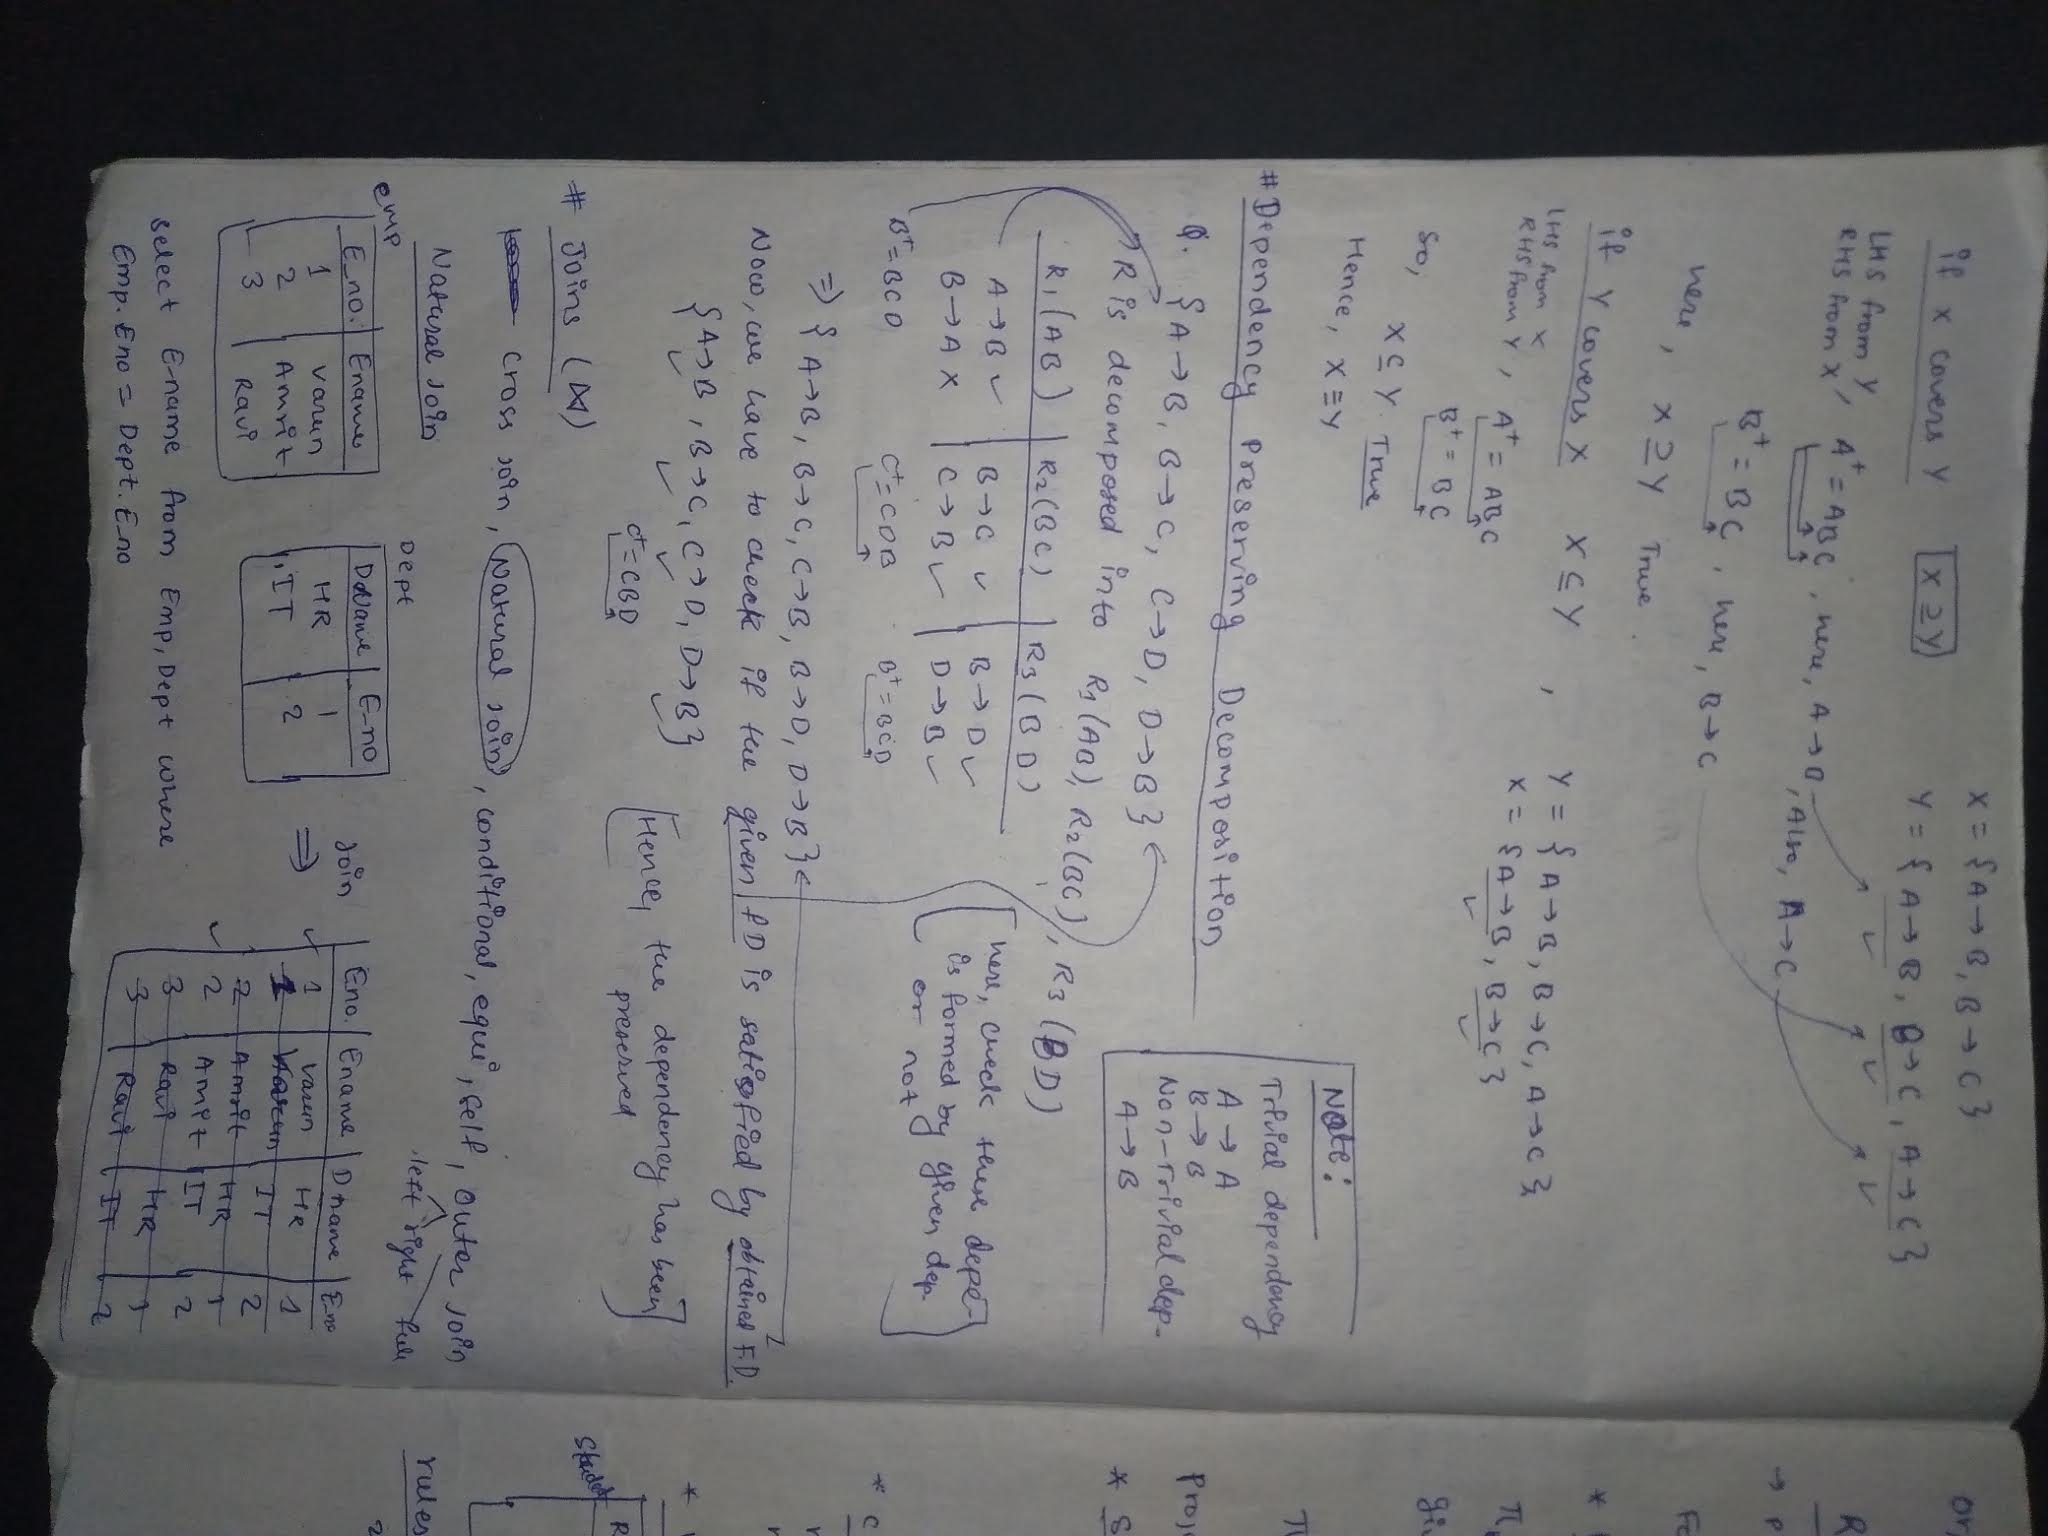 if X covers Y   X ⊇ Y
X = {A → B, B → C}
Y = {A → B, B → C, A → C}
LHS from Y,
RHS from X
A⁺ = ABC, here, A → B, Also, A → C
B⁺ = BC, here, B → C
here, X ⊇ Y True.
if Y covers X   X ⊆ Y,
Y = {A → B, B → C, A → C},
X = {A → B, B → C}
LHS from X
RHS from Y,
A⁺ = ABC
B⁺ = BC
So,
X ⊆ Y True
Hence, X ≡ Y
Note:
Trivial dependency
A → A
B → B
Non-Trivial dep.
A → B
# Dependency Preserving Decomposition
Q. {A → B, B → C, C → D, D → B}
R is decomposed into R1(AB), R2(BC), R3(BD)
R1(AB) R2(BC) R3(BD)
A → B ✓ B → C ✓ B → D ✓
B → A × C → B ✓ D → B ✓
B⁺ = BCD C⁺ = CDB B⁺ = BCD
[here, check these depe-
is formed by given dep.
or not]
⇒ {A → B, B → C, C → B, B → D, D → B}
Now, we have to check if the given fD is satisfied by obtained F.D.
{A → B, B → C, C → D, D → B}
✓ ✓ ✓ ✓
C⁺ = CBD
[Hence, the dependency has been
preserved]
# Joins (⋈)
Cross join, Natural join, conditional, equi, self, outer join
left right full
Natural join
emp
E_no. Ename
1 Varun
2 Amrit
3 Ravi
Dept
DName E_no
HR 1
IT 2
Join
⇒
Eno. Ename Dname E_no
✓ 1 Varun HR 1
1 Varun IT 2
2 Amrit HR 1
✓ 2 Amrit IT 2
3 Ravi HR 1
3 Ravi IT 2
select E-name from Emp, Dept where
Emp. Eno = Dept. E_no
or,
R
→ P
Fo
*
π
giv
π
proj
* S
* C
r
r
*
Student
R
rules
2